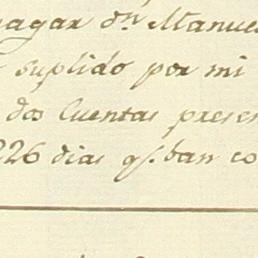 pagar dn Manue
suplido por mi
dos Cuentas presen
226 dias q. ban co